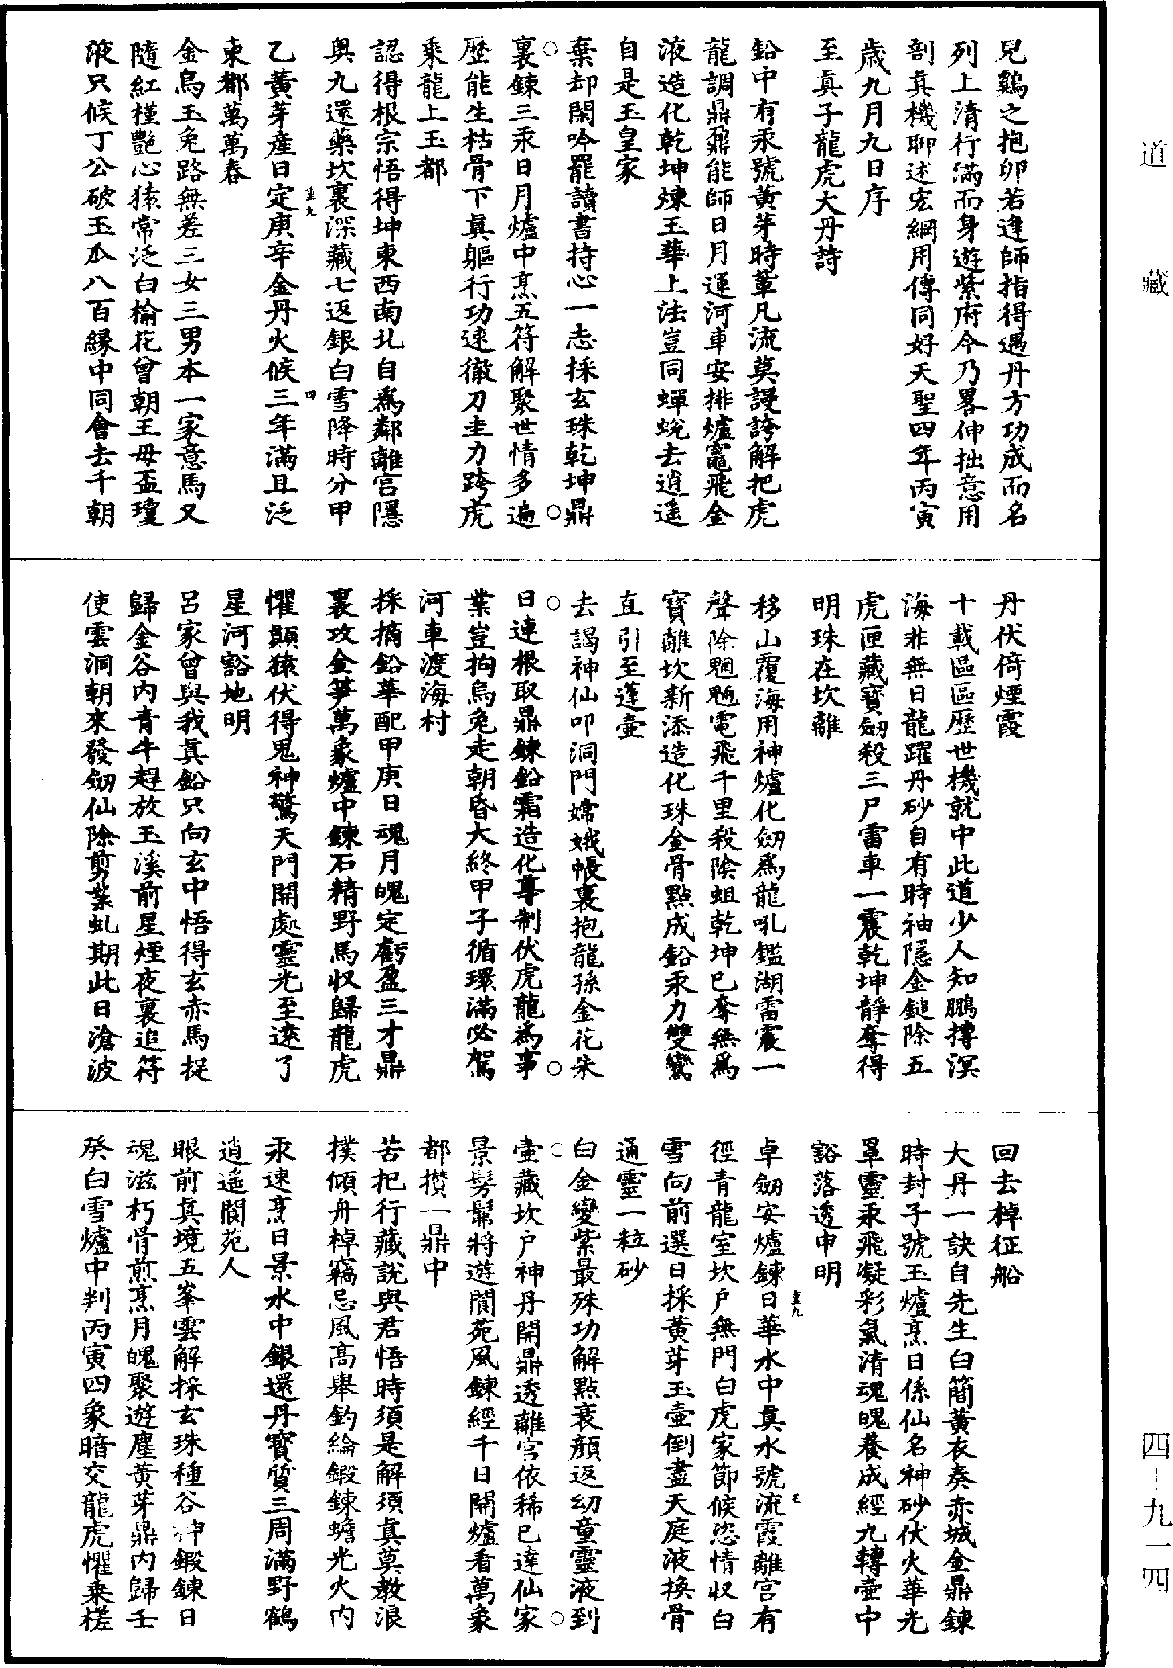 道藏
兒鷄之抱卵若逢師指得遇丹方功成而名
列上清行滿而身遊紫府今乃畧伸拙意用
剖真機聊述宏綱用傳同好天聖四年丙寅
歲九月九日序
至真子龍虎大丹詩
鉛中有汞號黃芽時輩凡流莫謾誇解把虎
龍調鼎鼐能師日月運河車安排爐竈飛金
液造化乾坤煉玉華上法豈同蟬蛻去逍遥
自是玉皇家
棄却閑吟罷讀書持心一志採玄珠乾坤鼎
裏鍊三汞日月爐中烹五符解聚世情多遍
歷能生枯骨下真軀行功速徹刀圭力跨虎
乘龍上玉都
認得根宗悟得坤東西南北自爲鄰離宮隱
奥九還藥坎裏深藏七返銀白雪降時分甲
乙黃芽產日定庚辛金丹火候三年滿且泛
東都萬萬春
金烏玉兔路無差三女三男本一家意馬又
隨紅槿艷心猿常泛白榆花曾朝王母盃瓊
液只候丁公破玉瓜八百緣中同會去千朝
丹伏倚煙霞
十載區區歷世機就中此道少人知鵬摶溟
海非無日龍躍丹砂自有時袖隱金鎚除五
虎匣藏寶劒殺三尸雷車一震乾坤靜奪得
明珠在坎離
移山覆海用神爐化劒爲龍吼鑑湖雷震一
聲除魍魎電飛千里殺陰蛆乾坤已奪無爲
寶離坎新添造化珠金骨點成鉛汞力雙鸞
直引至蓬壺
去謁神仙叩洞門嫦娥帳裏抱龍孫金花朱
日連根取鼎鍊鉛霜造化尊制伏虎龍爲事
業豈拘烏兔走朝昏大終甲子循環滿必駕
河車渡海村
採摘鉛華配甲庚日魂月魄定虧盈三才鼎
裏攻金筍萬象爐中鍊石精野馬収歸龍虎
懼顛猿伏得鬼神驚天門開處靈光至遠了
星河豁地明
呂家曾與我真鉛只向玄中悟得玄赤馬捉
歸金谷内青牛趕放玉溪前星煙夜裏追符
使雲洞朝來發劒仙除剪紫虬期此日滄波
回去棹征船
大丹一訣自先生白簡黃衣奏赤城金鼎鍊
時封子號玉爐烹日係仙名神砂伏火華光
罩靈汞飛凝彩氣清魂魄養成經九轉壺中
豁落透申明
卓劒安爐鍊日華水中真水號流霞離宮有
徑青龍室坎戶無門白虎家節候恣情収白
雪向前選日採黃芽玉壺倒盡天庭液換骨
通靈一粒砂
白金變紫最殊功解點衰顏返幼童靈液到
壺藏坎戶神丹開鼎透離宮依稀已達仙家
景髣髴將遊閬苑風鍊經千日開爐看萬象
都攅一鼎中
苦把行藏說與君悟時須是解須真莫教浪
撲傾舟棹竊忌風高舉釣綸鍛鍊蟾光火内
汞速烹日景水中銀還丹寶質三周滿野鶴
逍遥閬苑人
眼前真境五峯雲解採玄珠種谷神鍛鍊日
魂滋朽骨煎烹月魄聚遊塵黃芽鼎内歸壬
癸白雪爐中判丙寅四象暗交龍虎懼乘槎
四－九一四